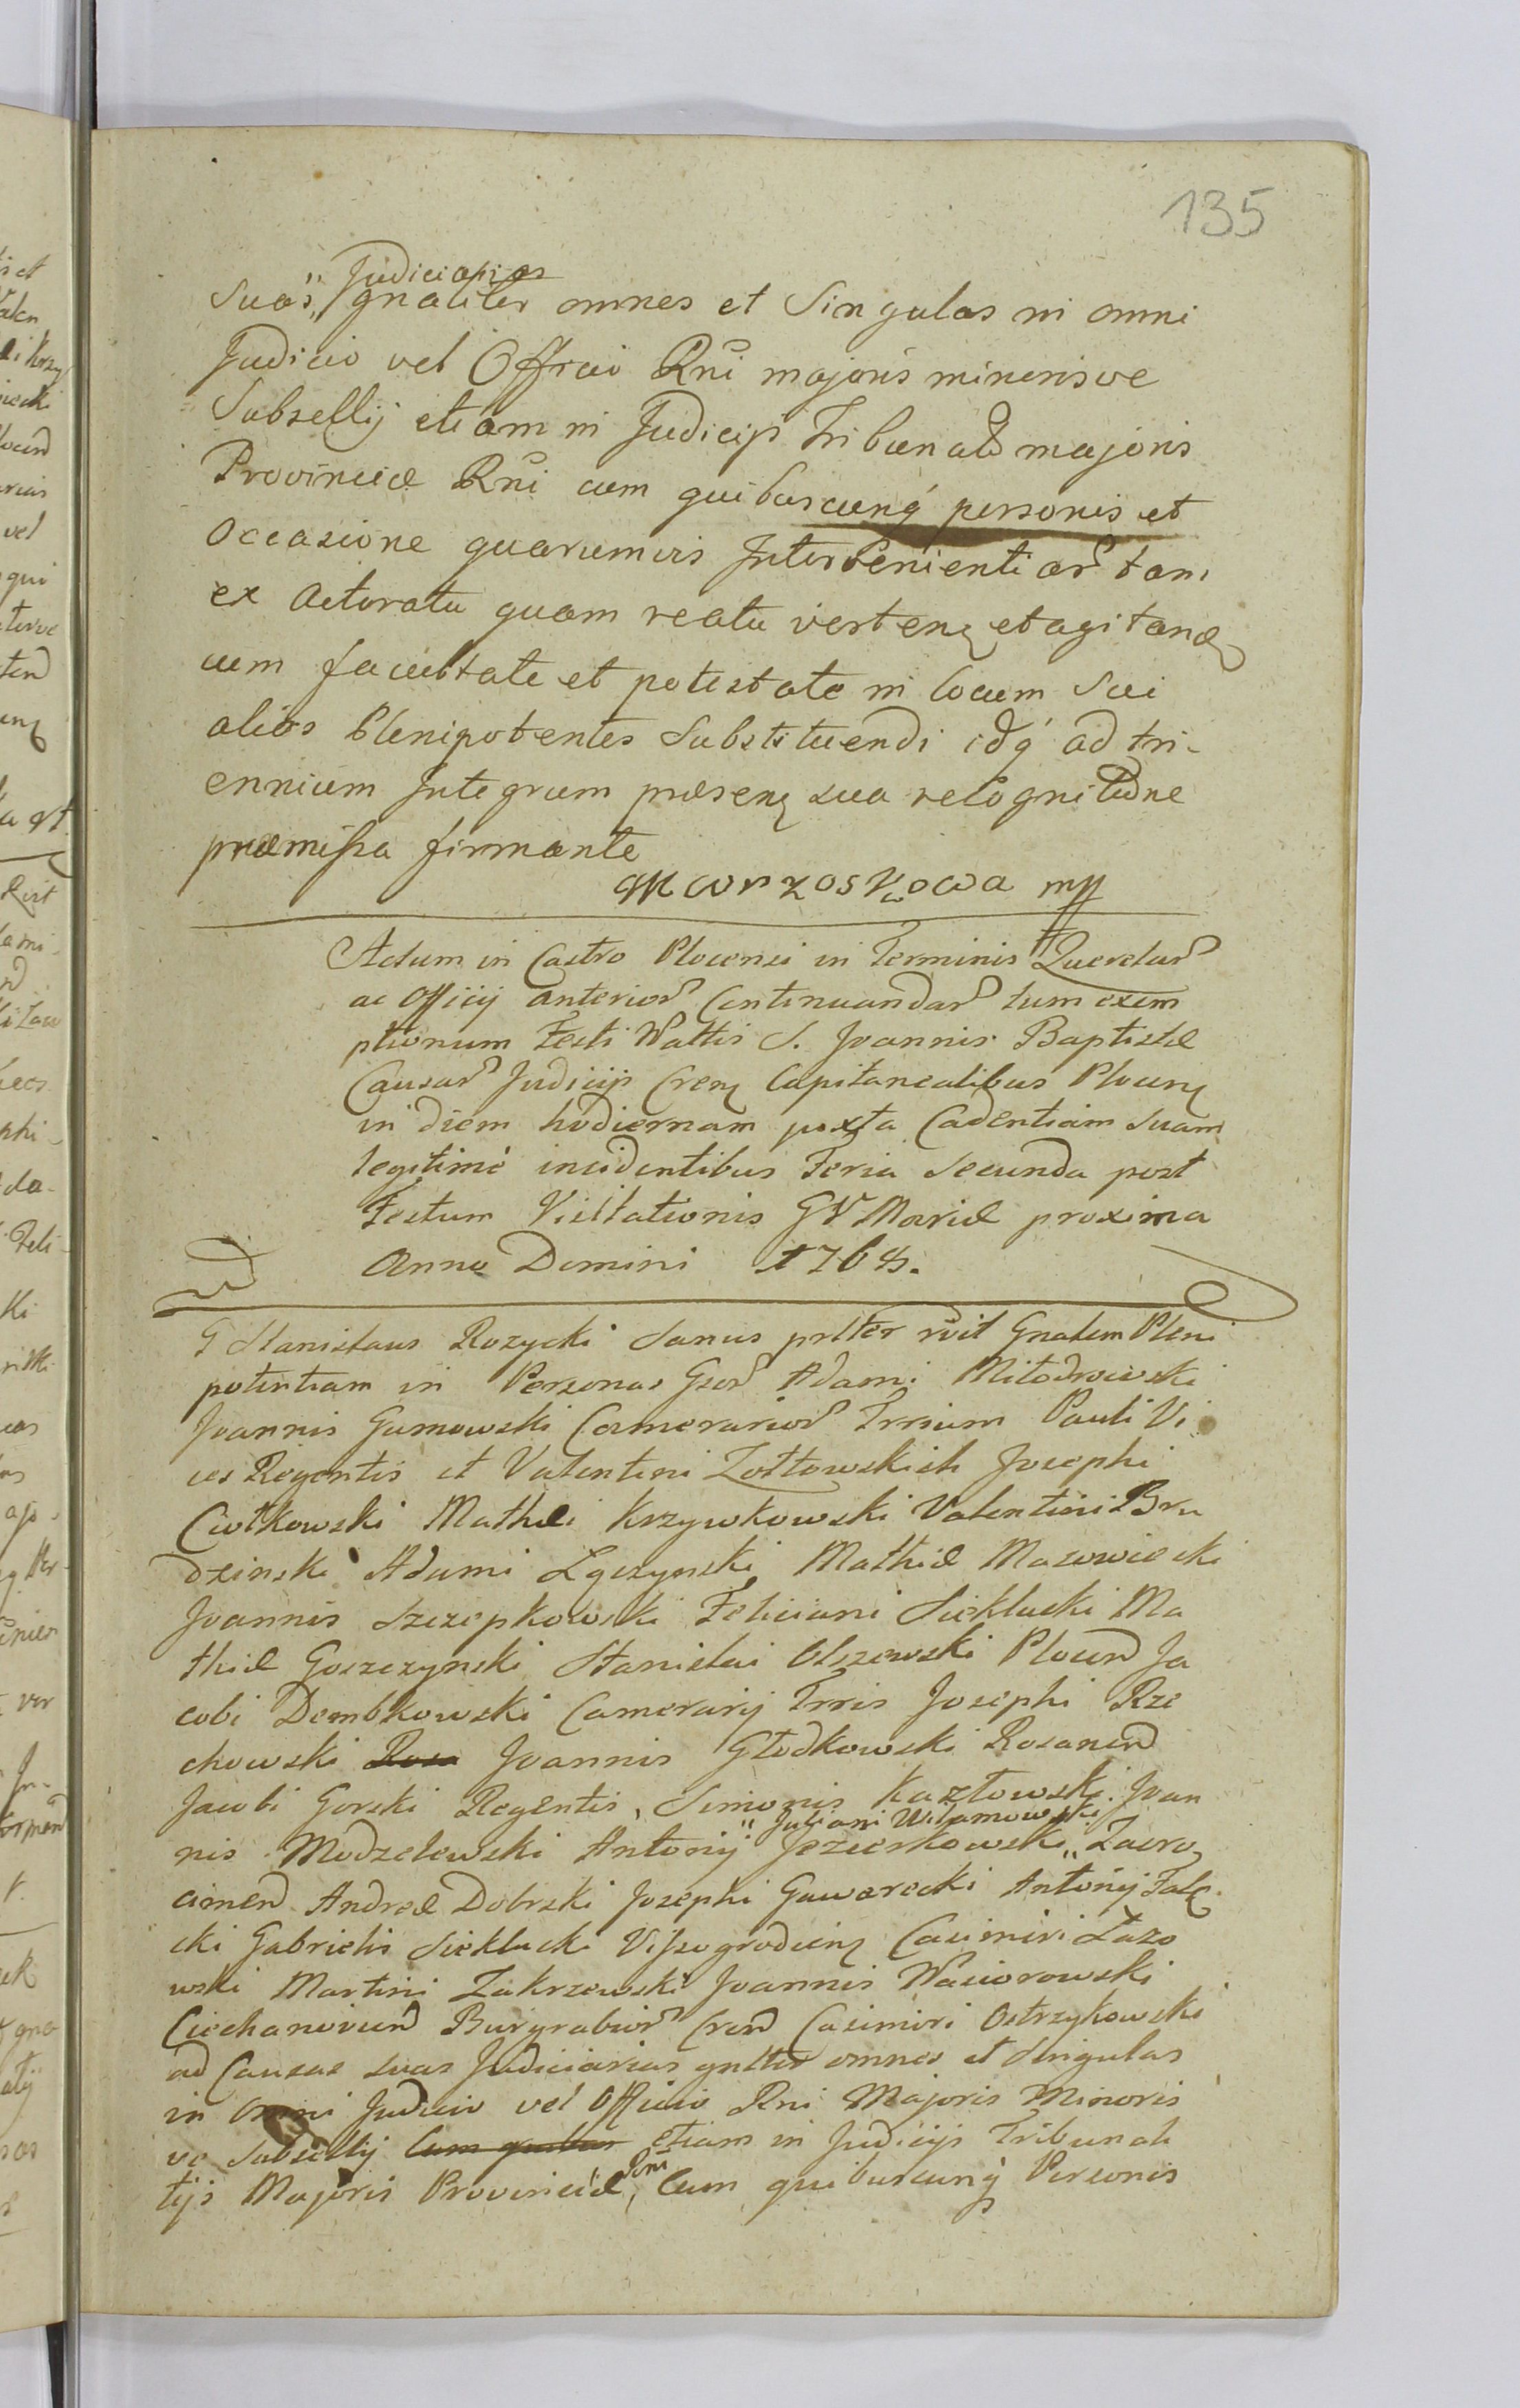 135
Judiciarias
Suas, gnaliter omnes et Singulas in omni
Judicio vel Offcio Rni majoris minorisve
Subsellij etiam in Judicijs Tribunal majoris
Provinciæ Rni cum quibuscunq personis et
Occasione quarumvis Intervenientiar tam
ex Actoratu quam reatu verten et agitand
cum facultate et potestate in locum Sui
alios Plenipotentes Substituendi idq ad tri-
ennium Integrum præsen sua recognitione
præmissa firmante
Mwrzoskowa mpp
Actum in Castro Plocensi in Terminis Querelar
ac Officij anterior Continuandar tum exem
ptionum Festi Nattis S. Joannis Baptistæ
Causar Judicijs Cren Capitanealibus Plocen
in diem hodiernam juxta Cadentiam suam
legitimè incidentibus Feria Secunda post
Festum Visitationis GV Mariæ proxima
Anno Domini 1764.
G Stanislaus Rozycki Sanus prtter rvit Gnalem Pleni
potentiam in Personas Gsor Adami Milodrowski
Joannis Gumowski Camerarior Trrium Pauli Vi
ces Regentis et Valentini Zołtowskich Josephi
Ciołkowski Mathæi Krzywkowski Valentini Bru
dzinski Adami Lączynski Mathiæ Mazowiecki
Joannis Szczepkowski Feliciani Sieklucki Ma
thiæ Goszczynski Stanislai Olszewski Plocen Ja
cobi Dembkowski Camerarij Trris Josephi Rze
chowski Rosa Joannis Głodkowski Rosanen
Jacobi Gorski Regentis, Simonis Kozłowski Joan
Juliani Wilamowski
nis Modzelewski Antonij Jezierkowski Zacro
cimen Andreæ Dobrski Josephi Gawarecki Antonij Falę
cki Gabrielis Sieklucki Vissogrodien Casimiri Łazo
wski Martini Zakrzewski Joannis Wasiorowski
Ciechanovien Burgrabior Cren Casimiri Ostrzykowski
ad Causas suas Judiciarias gnlter omnes et Singulas
in Omni Judicio vel Officio Rni Majoris Minoris
ve Subsellij Cum quibus etiam in Judicijs Tribunali
Rni
tijs Majoris Provinciæ, Cum quibuscunq Personis